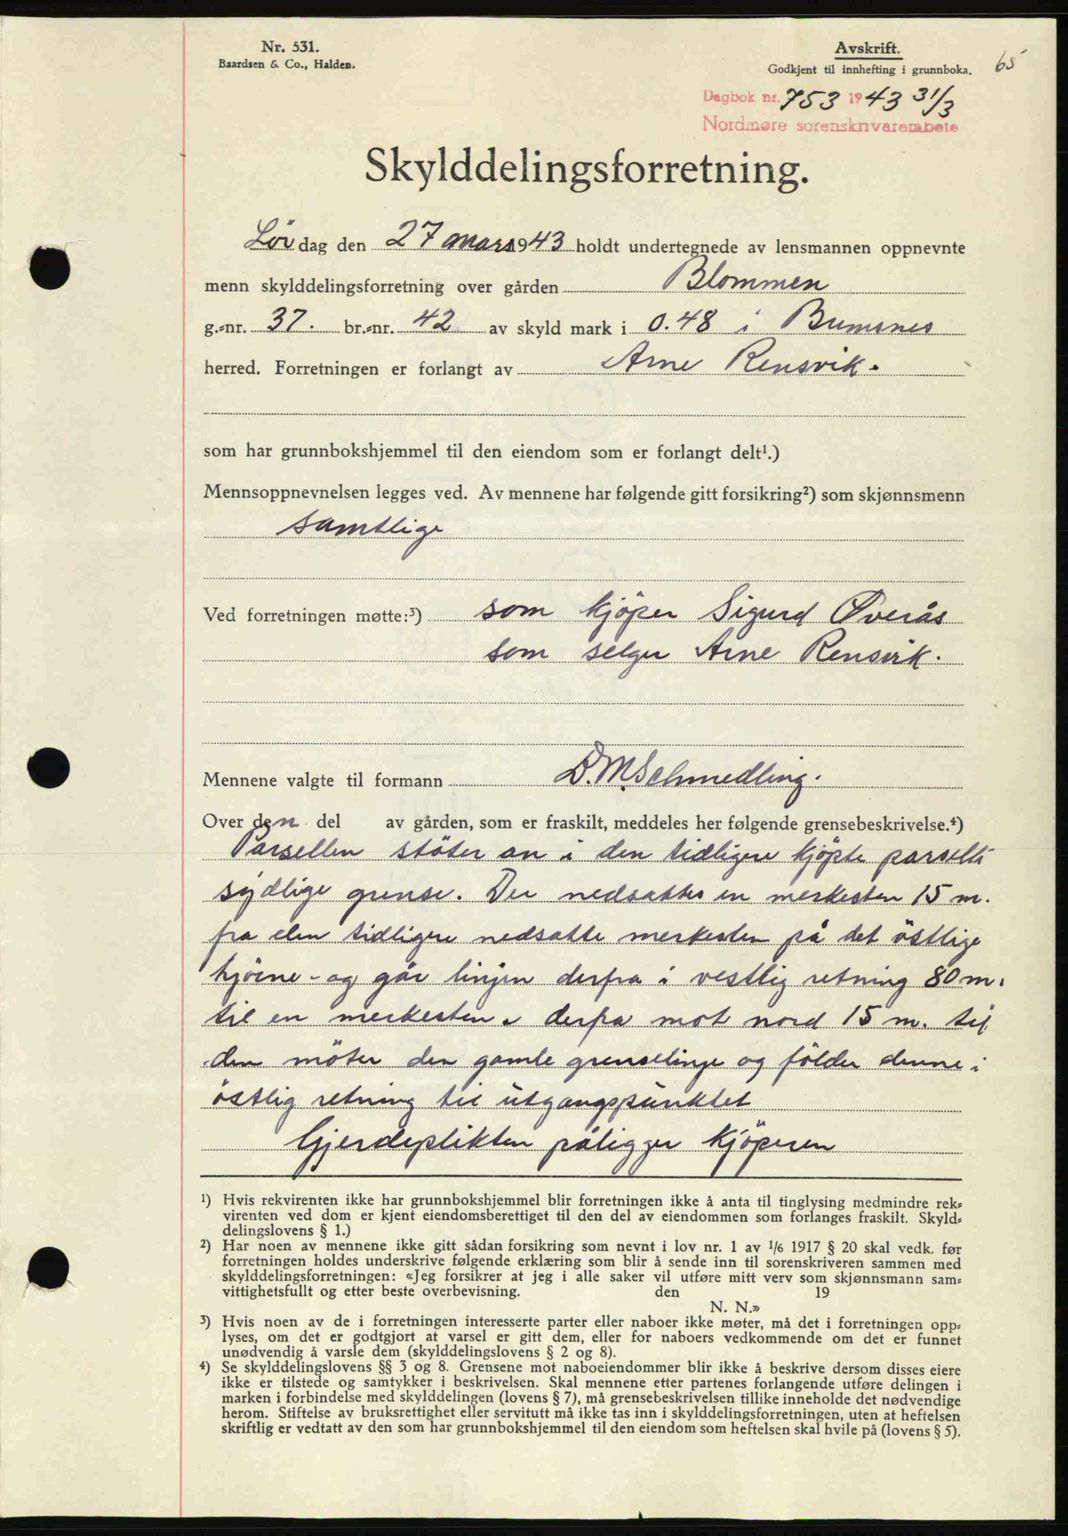 Nr. 531.
Baardsen & Co., Halden.
Avskrift.
Godkjent til innhefting i grunnboka.
65
Dagbok nr. 753 1943 31/3
Nordmøre sorenskriverembete
Skylddelingsforretning.
Lør dag den 27 mars 1943 holdt undertegnede av lensmannen oppnevnte
menn skylddelingsforretning over gården Blommen
g.-nr. 37. br.-nr. 42 av skyld mark i 0.48 i Bremsnes
herred. Forretningen er forlangt av Arne Rensvik.
som har grunnbokshjemmel til den eiendom som er forlangt delt¹.)
Mennsoppnevnelsen legges ved. Av mennene har følgende gitt forsikring²) som skjønnsmenn
samtlige
Ved forretningen møtte:³) som kjöper Sigurd Øverås
som selger Arne Rensvik.
Mennene valgte til formann D. M. Schmedling.
Over den del av gården, som er fraskilt, meddeles her følgende grensebeskrivelse.⁴)
Parsellen stöter an i den tidligere kjöpte parsells
sydlige grense. Der nedsattes en merkesten 15 m.
fra den tidligere nedsatte merkesten på det östlige
hjörne - og går linjen derfra i vestlig retning 80 m.
til en merkesten. derfra mot nord 15 m. til
den möter den gamle grenselinje og földer denne i
östlig retning til utgangspunktet
Gjerdeplikten påligger kjöperen
¹) Hvis rekvirenten ikke har grunnbokshjemmel blir forretningen ikke å anta til tinglysing medmindre rek-
virenten ved dom er kjent eiendomsberettiget til den del av eiendommen som forlanges fraskilt. Skyld-
delingslovens § 1.)
²) Har noen av mennene ikke gitt sådan forsikring som nevnt i lov nr. 1 av 1/6 1917 § 20 skal vedk. før
forretningen holdes underskrive følgende erklæring som blir å sende inn til sorenskriveren sammen med
skylddelingsforretningen: «Jeg forsikrer at jeg i alle saker vil utføre mitt verv som skjønnsmann sam-
vittighetsfullt og etter beste overbevisning. den 19
N. N.»
³) Hvis noen av de i forretningen interesserte parter eller naboer ikke møter, må det i forretningen opp-
lyses, om det er godtgjort at varsel er gitt dem, eller for naboers vedkommende om det er funnet
unødvendig å varsle dem (skylddelingslovens § 2 og 8).
⁴) Se skylddelingslovens §§ 3 og 8. Grensene mot naboeiendommer blir ikke å beskrive dersom disses eiere
ikke er tilstede og samtykker i beskrivelsen. Skal mennene etter partenes forlangende utføre delingen i
marken i forbindelse med skylddelingen (lovens § 7), må grensebeskrivelsen tillike inneholde det nødvendige
herom. Stiftelse av bruksrettighet eller servitutt må ikke tas inn i skylddelingsforretningen, uten at heftelsen
skriftlig er vedtatt av den som har grunnbokshjemmel til den eiendom som heftelsen skal hvile på (lovens § 5).